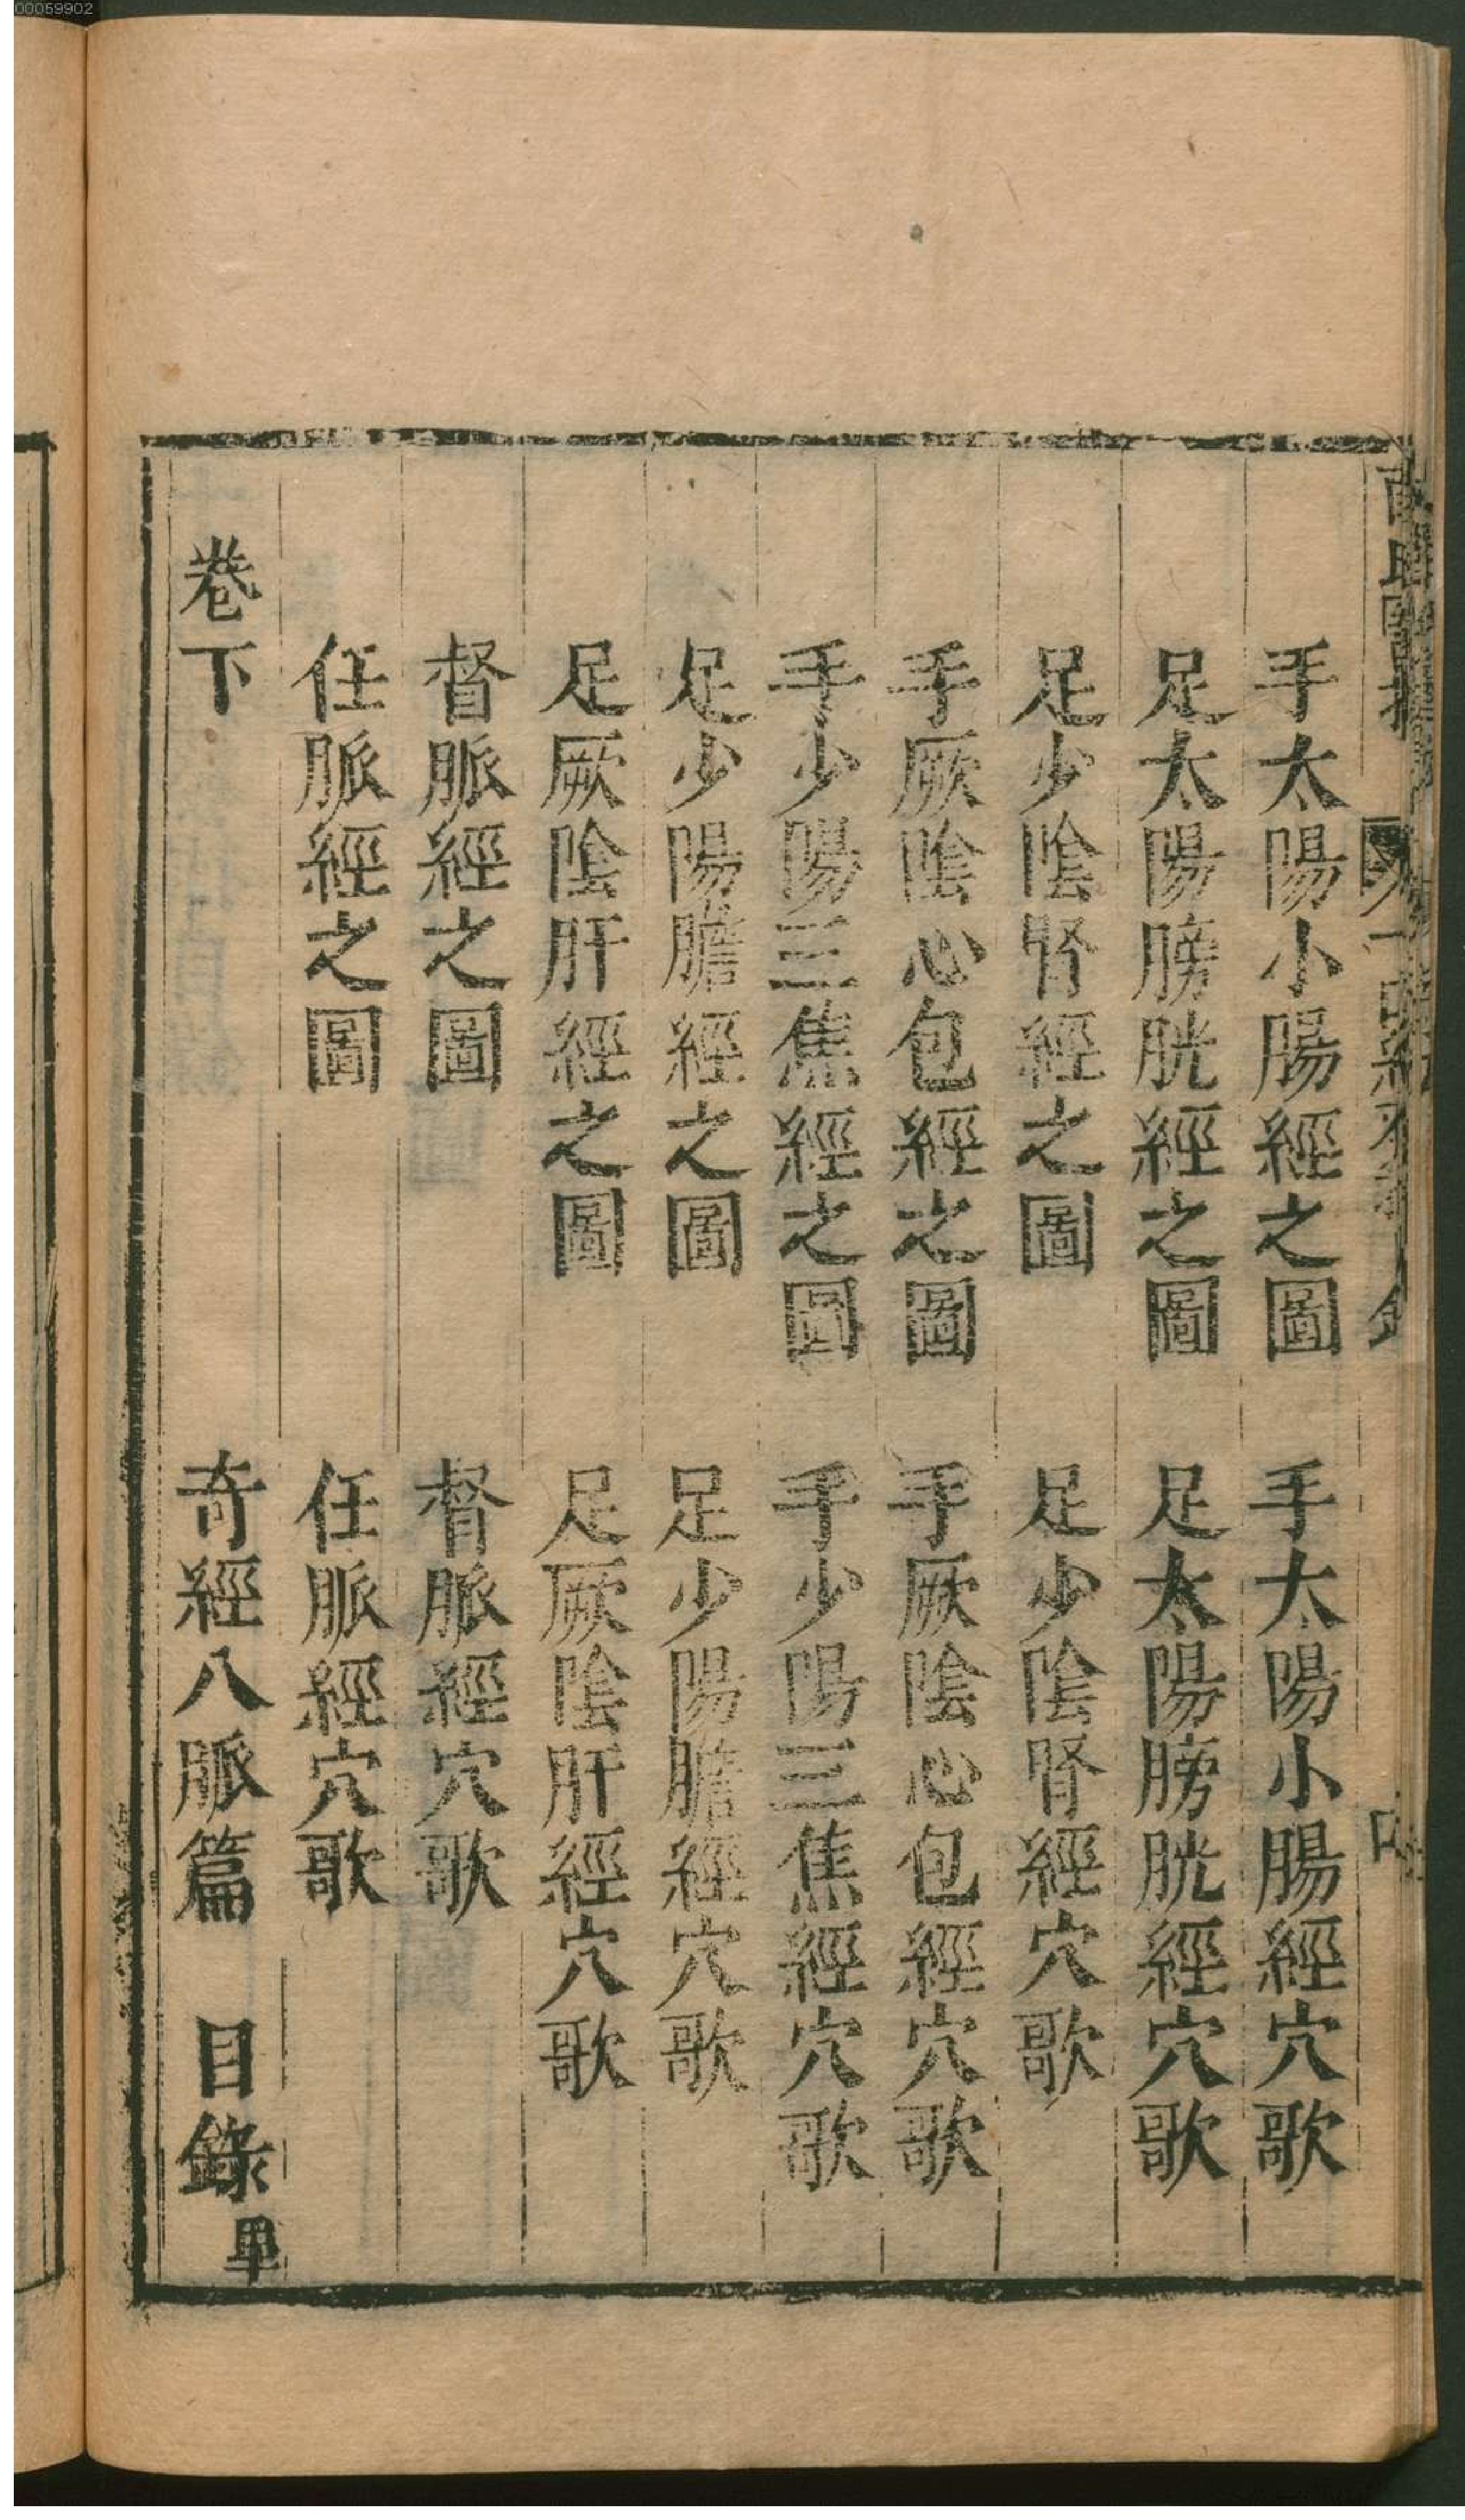 00059902
手太陽小腸經之圖　手太陽小腸經穴歌
足太陽膀胱經之圖　足太陽膀胱經穴歌
足少陰腎經之圖　足少陰腎經穴歌
手厥陰心包經之圖　手厥陰心包經穴歌
手少陽三焦經之圖　手少陽三焦經穴歌
足少陽膽經之圖　足少陽膽經穴歌
足厥陰肝經之圖　足厥陰肝經穴歌
督脈經之圖　督脈經穴歌
任脈經之圖　任脈經穴歌
卷下　奇經八脈篇　目錄畢